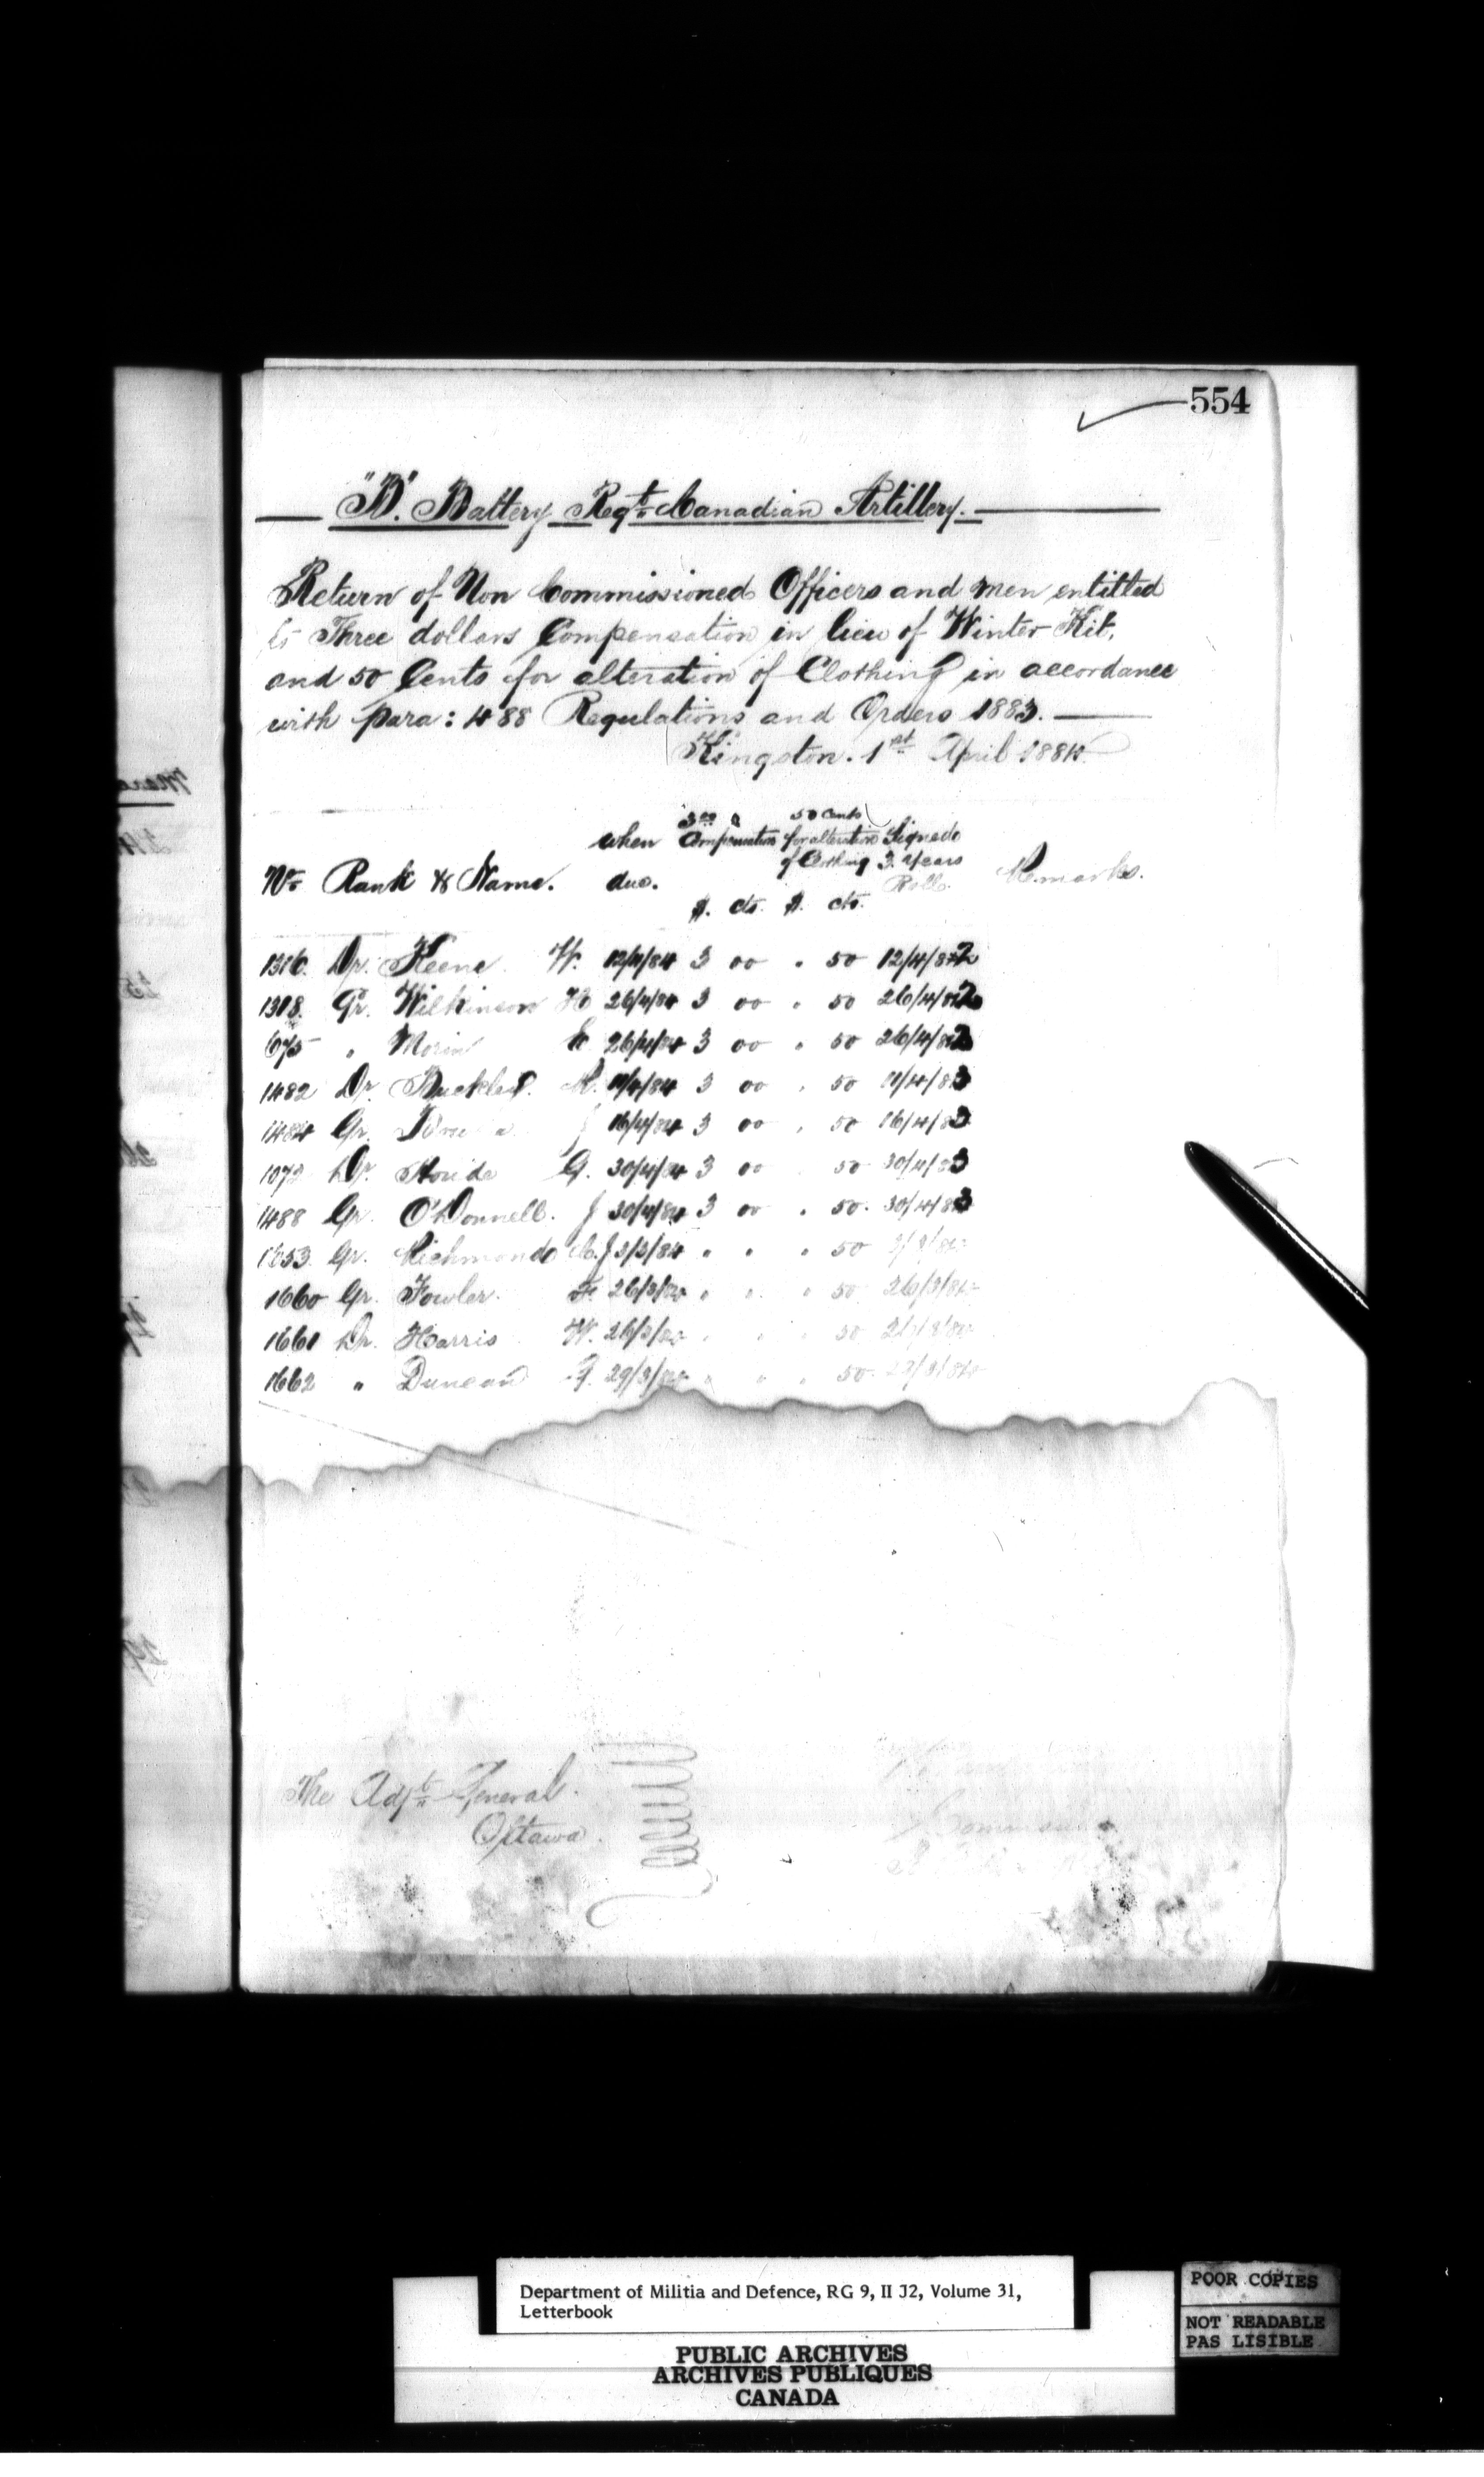 554
"B". Battery Regt. Canadian Artillery.
Return of Non Commissioned Officers and men entitled
to Three dollars Compensation in lieu of Winter Kit,
and 50 Cents for alteration of Clothing in accordance
with para: 488 Regulations and Orders 1883.
Kingston. 1st April 1884.
No. Rank & Name. when due. Compensation $. cts. 50 Cents for alteration of Clothing $. cts. Signed 3 Years Roll. Remarks.
1316. Dr. Keene W. 12/4/84 3 00 " 50 12/4/82
1318. Gr. Wilkinson H 26/4/84 3 00 " 50 26/4/82
675 " Morin E 26/4/84 3 00 " 50 26/4/82
1482 Dr. 11/4/84 3 00 " 50 11/4/83
1484 Gr. J 16/4/84 3 00 " 50 16/4/83
Dr. G. 30/4/84 3 00 50 30/4/83
1488 Gr. O'Donnell. J 30/4/84 3 00 " 50. 30/4/83
1653. Gr. Richmond 3/3/84 " " " 50
1660 Gr. Fowler. F. 26/3/84 " " " 50 26/3/84
1661 Dr. Harris W. 26/3/84 50
1662 " Duncan 29/3/84 " " " 50. 29/3/84
The Adjt. General.
Ottawa.
Department of Militia and Defence, RG 9, II J2, Volume 31,
Letterbook
PUBLIC ARCHIVES
ARCHIVES PUBLIQUES
CANADA
POOR COPIES
NOT READABLE
PAS LISIBLE